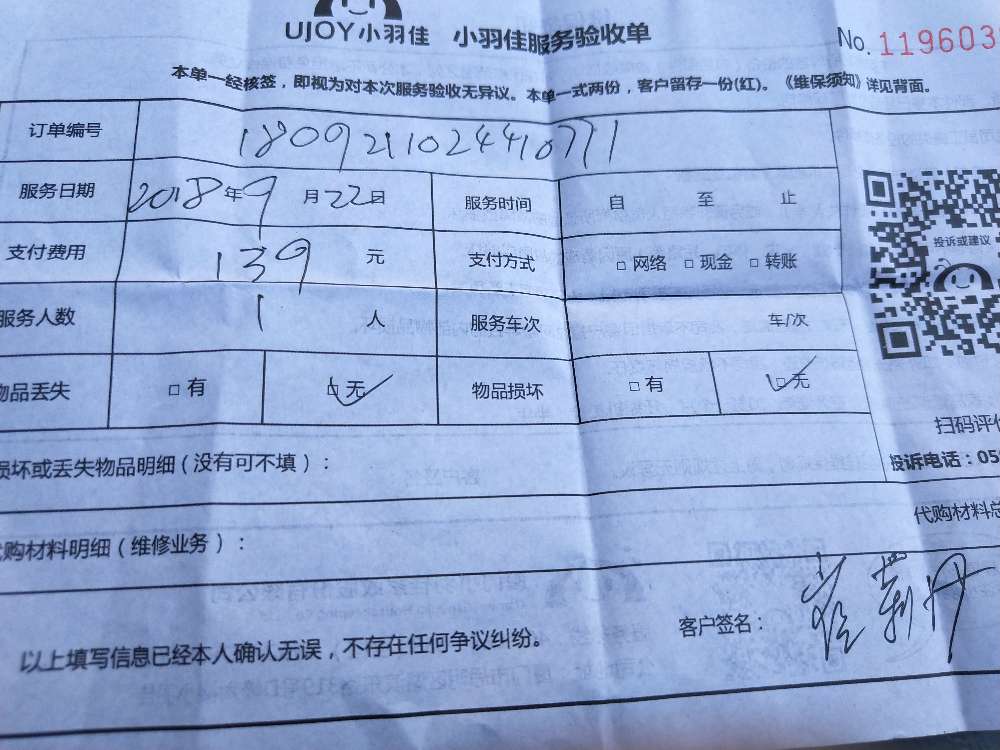 UJOY小羽佳 小羽佳服务验收单
No. 119603
本单一经核签，即视为对本次服务验收无异议。本单一式两份，客户留存一份(红)。《维保须知》详见背面。
订单编号 1809211024410771
服务日期 2018年9月22日 服务时间 自 至 止
支付费用 139 元 支付方式 □ 网络 □ 现金 □ 转账
投诉或建议
服务人数 1 人 服务车次 车/次
物品丢失 □ 有 □ 无 物品损坏 □ 有 □ 无
扫码评价
损坏或丢失物品明细（没有可不填）：
投诉电话：05
代购材料明细（维修业务）：
代购材料总
以上填写信息已经本人确认无误，不存在任何争议纠纷。 客户签名：